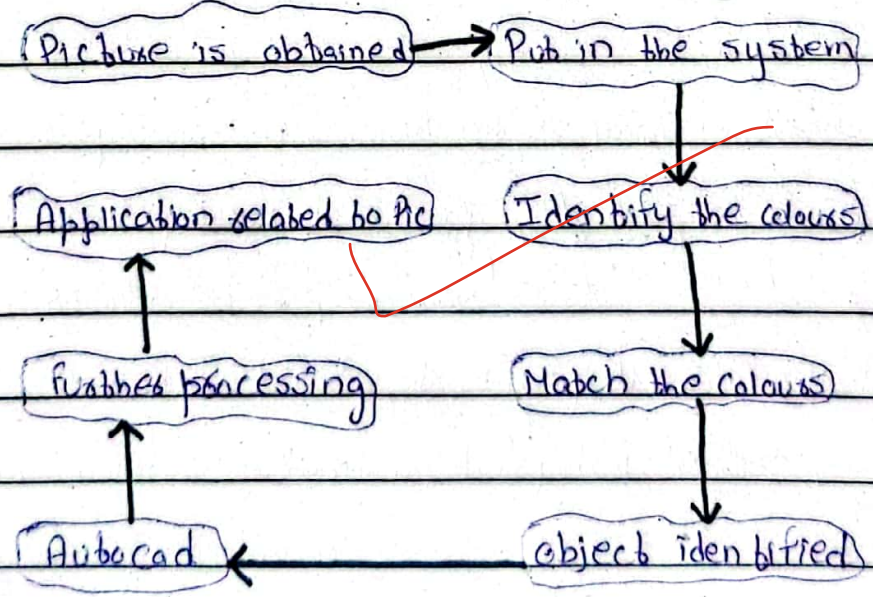 Picture is obtained
Put in the system
Identify the colours
Match the Colours
object identified
Autocad
further processing
Application related to Pic